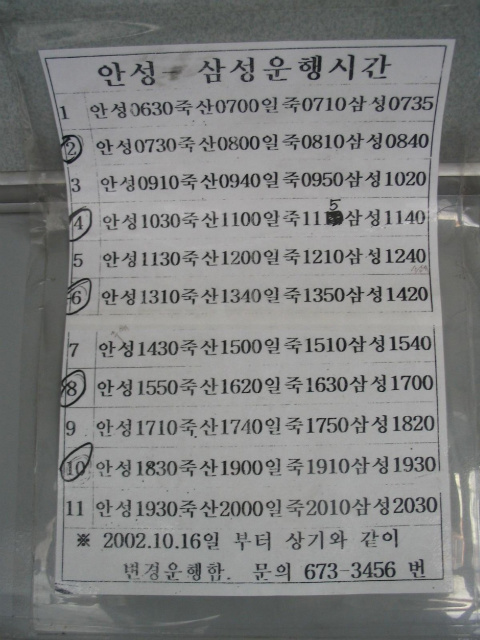 안성- 삼성운행시간
1 안성0630죽산0700일죽0710삼성0735
2 안성0730죽산0800일죽0810삼성0840
3 안성0910죽산0940일죽0950삼성1020
4 안성1030죽산1100일죽115삼성1140
5 안성1130죽산1200일죽1210삼성1240
6 안성1310죽산1340일죽1350삼성1420
7 안성1430죽산1500일죽1510삼성1540
8 안성1550죽산1620일죽1630삼성1700
9 안성1710죽산1740일죽1750삼성1820
10 안성1830죽산1900일죽1910삼성1930
11 안성1930죽산2000일죽2010삼성2030
※ 2002.10.16일 부터 상기와 같이
변경운행함. 문의 673-3456 번